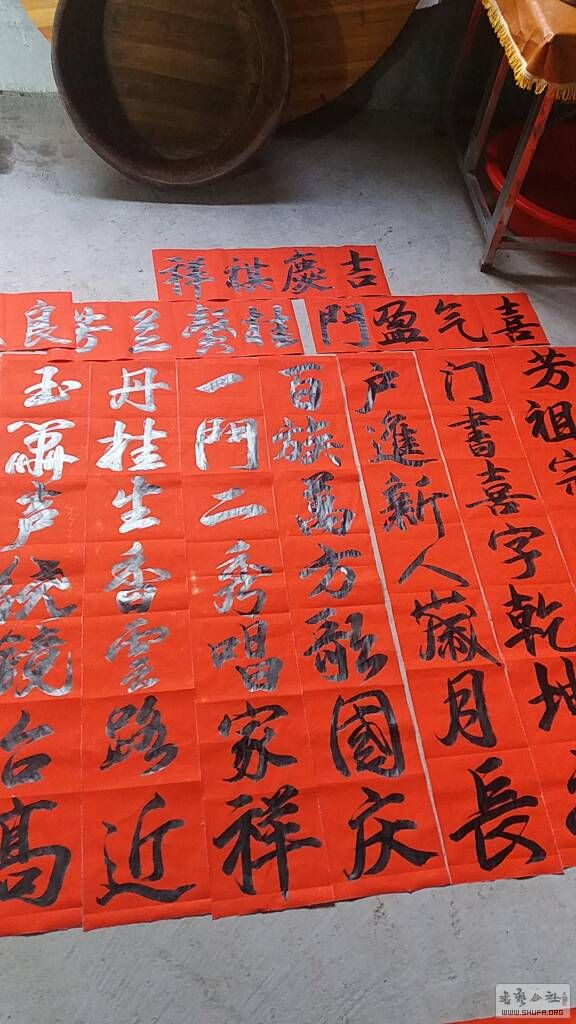 吉慶祺祥
喜气盈門
桂馥兰芳
良
芳祖宗
门書喜字乾坤
户進新人歲月長
百族萬方歌國庆
一門二秀唱家祥
丹桂生香雲路近
玉簫声繞镜台高
书艺公社
WWW.SHUFA.ORG